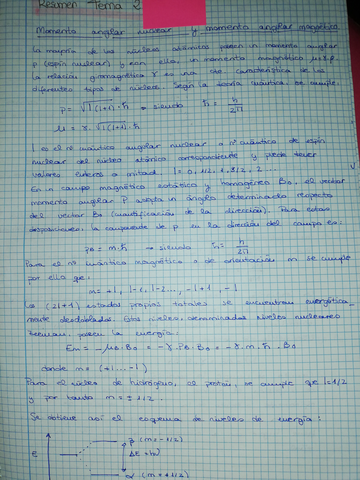 Resumen Tema 2
Momento angular nuclear y momento angular magnético
La mayoría de los núcleos atómicos poseen un momento angular
p (espín nuclear) y con ello, un momento magnético μ=γ.p
la relación giromagnética γ es una cte. característica de los
diferentes tipos de núcleos. Según la teoría cuántica, se cumple:
p = √I(I+1)·ħ → siendo ħ = h/2π
μ = γ·√I(I+1)·ħ
I es el nº cuántico angular nuclear o nº cuántico de espín
nuclear del núcleo atómico correspondiente y puede tener
valores enteros o mitad I = 0, 1/2, 1, 3/2, 2...
En un campo magnético estático y homogéneo B₀, el vector
momento angular P adopta un ángulo determinado respecto
del vector B₀ (cuantificación de la dirección). Para estas
la componente de p en la dirección del campo es:
p₀ = m·ħ → siendo ħ = h/2π
Para el nº cuántico magnético o de orientación m se cumple
por ello que:
m = +I, I-1, I-2..., -I+1, -I
Los (2I+1) estados propios totales se encuentran energética-
mente desdoblados. Estos niveles, denominados niveles nucleares
Zeeman, poseen la energía:
Em = -μ₀·B₀ = -γ·P₀·B₀ = -γ·m·ħ·B₀
donde m = (+I...-I)
Para el núcleo de hidrógeno, el protón, se cumple que I=1/2
y por tanto m = ± 1/2.
Se obtiene así el esquema de niveles de energía:
β (m = -1/2)
E
ΔE = hν
α (m = +1/2)